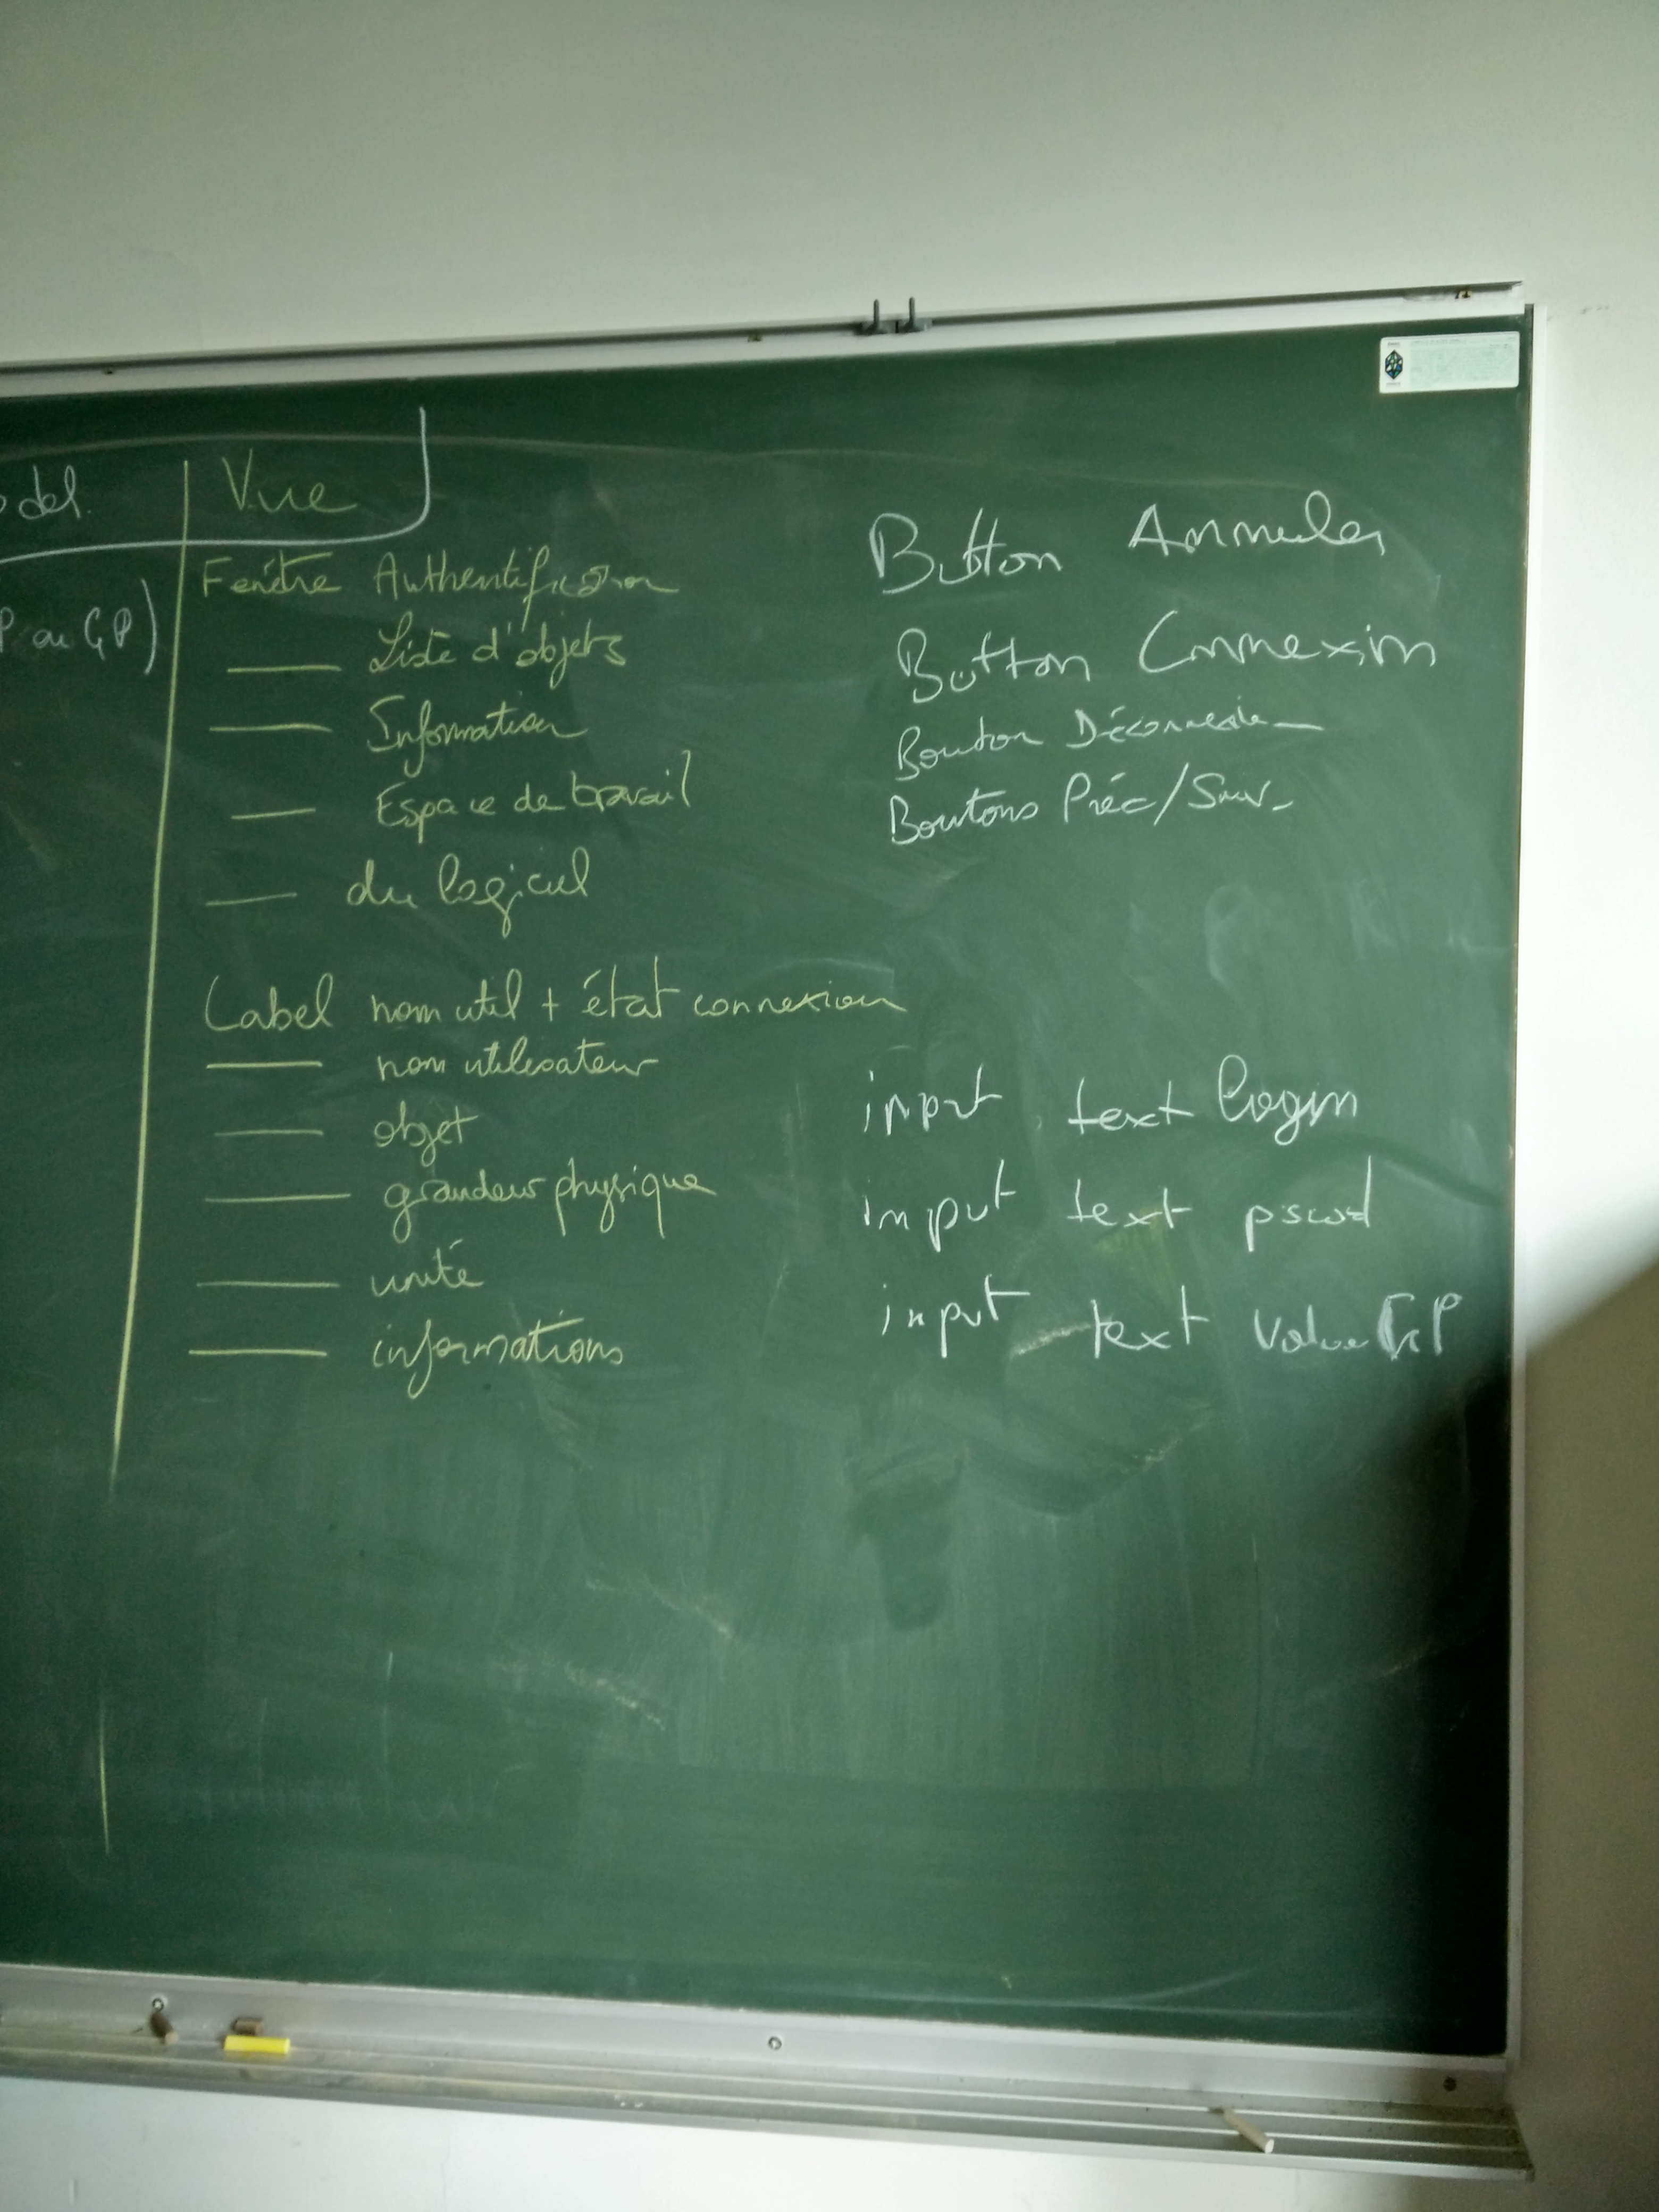 odel.
Vue
P ou GP)
Fenêtre Authentification
—— Liste d'objets
—— Information
—— Espace de travail
—— du logiciel
Label nom util + état connexion
—— nom utilisateur
—— objet
—— grandeur physique
—— unité
—— informations
Button Annuler
Button Connexion
Bouton Déconnexion
Boutons Préc/Suiv.
input text login
input text pswd
input text Value GP